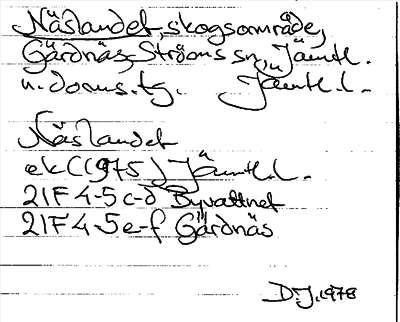 Näslandet, skogsområde,
Gärdnäs, Ströms sn, Jämtl.
n. doms. tg. Jämtl. l.
Näslandet
ek (1975) Jämtl. l.
21F 4-5 c-d Byvattnet
21F 4-5 e-f Gärdnäs
D.J. 1978